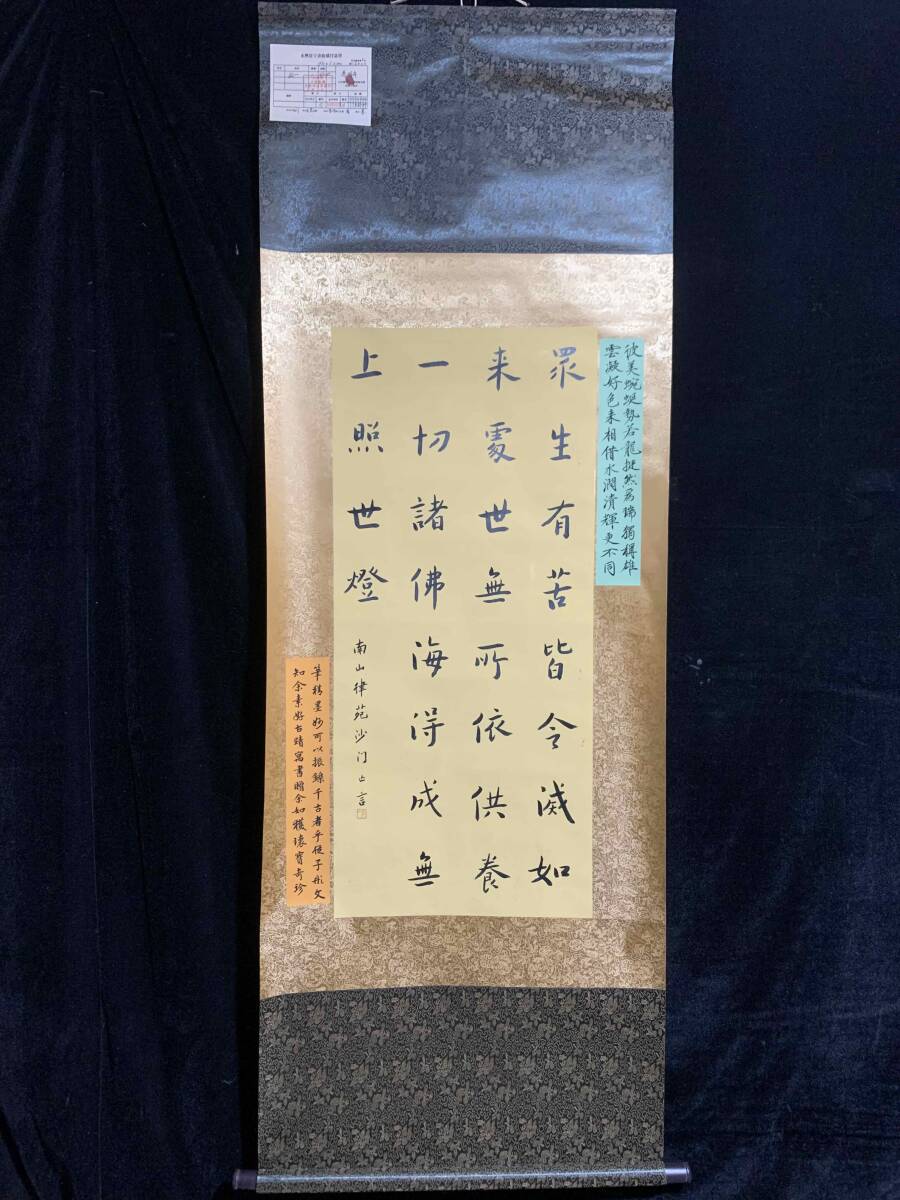 眾生有苦皆令滅如
来處世無所依供養
一切諸佛海得成無
上照世燈
南山律苑沙门亡言
彼美蜿蜒勢若龍挺然為瑞獨稱雄
雲凝好色来相借水潤清輝更不同
筆精墨妙可以振鑠千古者乎使子彤文
知余素好古蹟寫書贈余如獲瓌寶奇珍